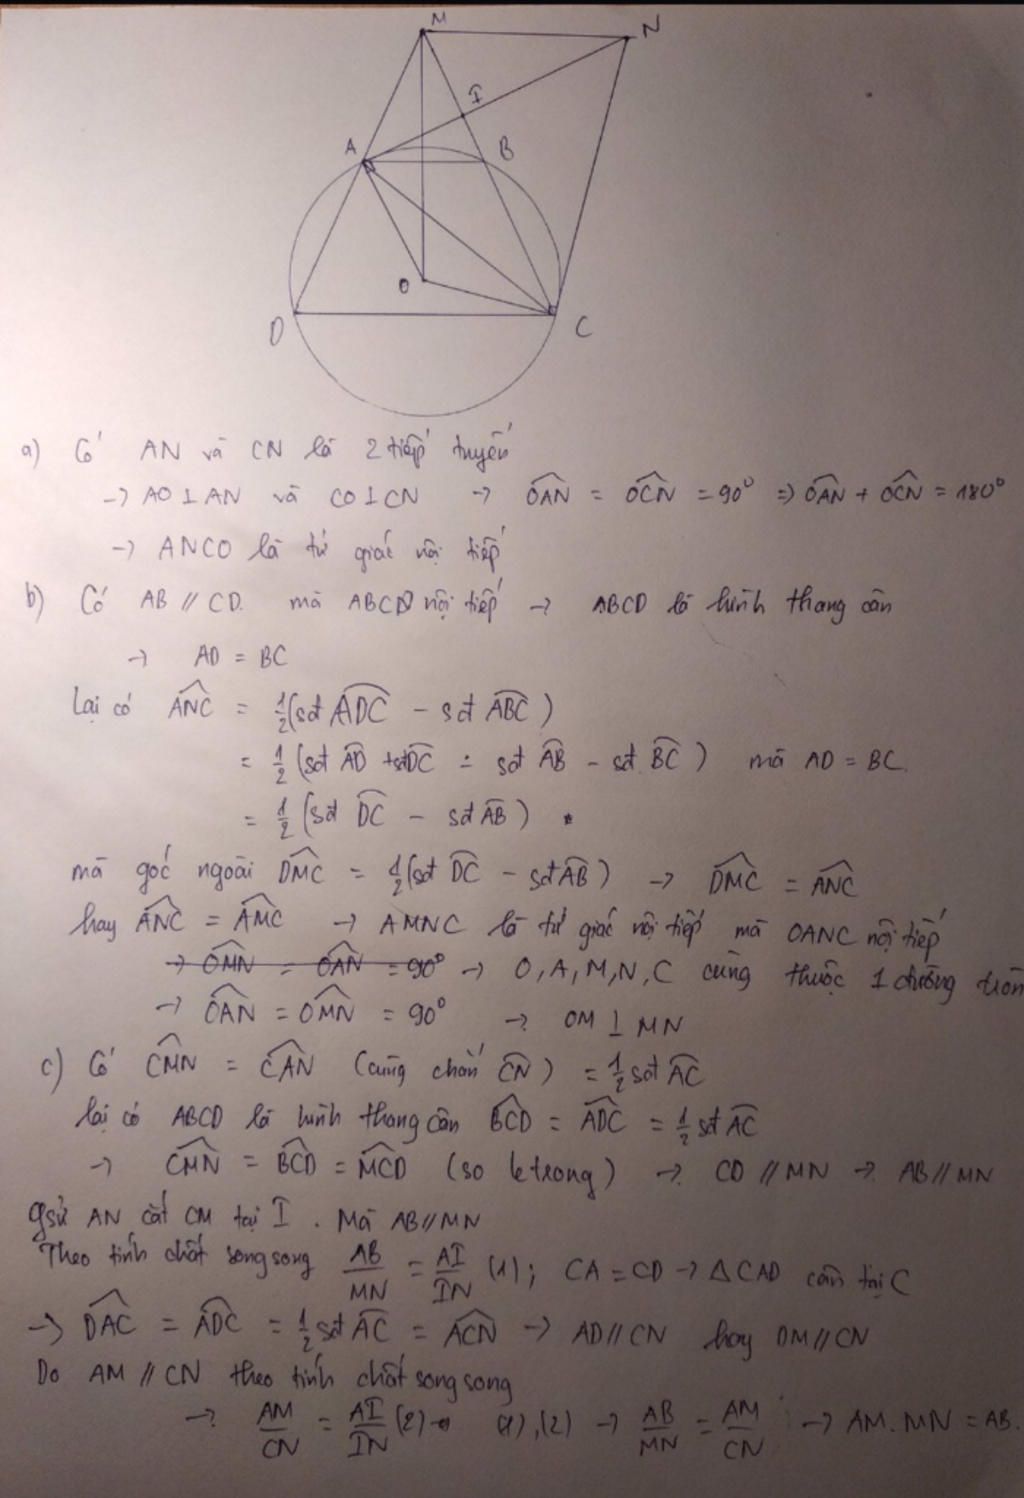 M
N
I
A
B
O
D
C
a) Có AN và CN là 2 tiếp tuyến
→ AO ⊥ AN và CO ⊥ CN → \widehat{OAN} = \widehat{OCN} = 90° ⇒ \widehat{OAN} + \widehat{OCN} = 180°
→ ANCO là tứ giác nội tiếp
b) Có AB // CD. mà ABCD nội tiếp → ABCD là hình thang cân
→ AD = BC
Lại có \widehat{ANC} = 1/2 (sđ \widehat{ADC} - sđ \widehat{ABC})
= 1/2 (sđ \widehat{AD} + sđ \widehat{DC} - sđ \widehat{AB} - sđ \widehat{BC}) mà AD = BC.
= 1/2 (sđ \widehat{DC} - sđ \widehat{AB})
mà góc ngoài \widehat{DMC} = 1/2 (sđ \widehat{DC} - sđ \widehat{AB}) → \widehat{DMC} = \widehat{ANC}
hay \widehat{ANC} = \widehat{AMC} → AMNC là tứ giác nội tiếp mà OANC nội tiếp
→ \widehat{OMN} = \widehat{OAN} = 90° → O, A, M, N, C cùng thuộc 1 đường tròn
→ \widehat{OAN} = \widehat{OMN} = 90° → OM ⊥ MN
c) Có \widehat{CMN} = \widehat{CAN} (cùng chắn \widehat{CN}) = 1/2 sđ \widehat{AC}
lại có ABCD là hình thang cân \widehat{BCD} = \widehat{ADC} = 1/2 sđ \widehat{AC}
→ \widehat{CMN} = \widehat{BCD} = \widehat{MCD} (so le trong) → CD // MN → AB // MN
Gsử AN cắt CM tại I. Mà AB // MN
Theo tính chất song song AB/MN = AI/IN (1); CA = CD → ΔCAD cân tại C
→ \widehat{DAC} = \widehat{ADC} = 1/2 sđ \widehat{AC} = \widehat{ACN} → AD // CN hay DM // CN
Do AM // CN theo tính chất song song
→ AM/CN = AI/IN (2) → (1), (2) → AB/MN = AM/CN → AM. MN = AB.